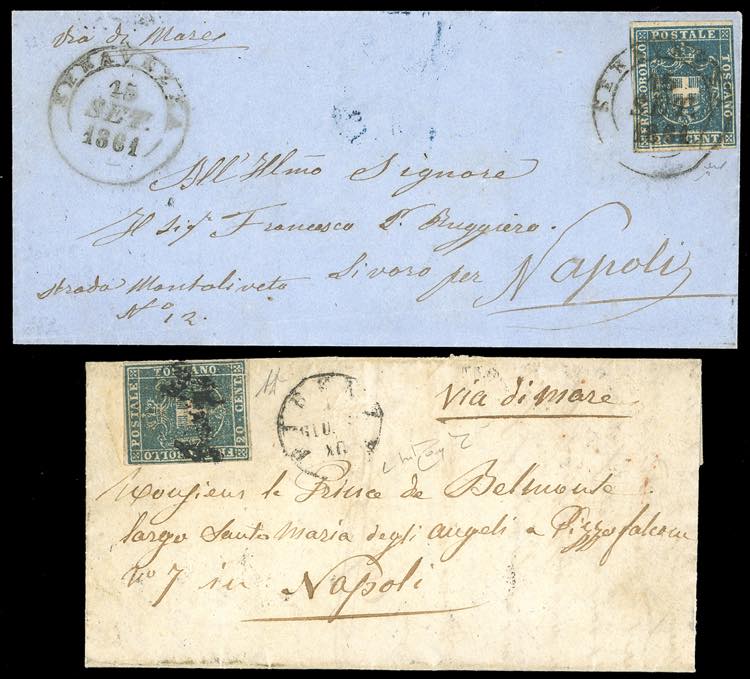 Via di Mare
SERAVEZZA
15
SET.
1861
FRANCOBOLLO
POSTALE
TOSCANO
CENT
SERA
All'Illmo Signore
Il Sigr Francesco Ruggiero.
Livorno per Napoli
Strada Montoliveto
No 12.
FRANCOBOLLO
POSTALE
TOSCANO
20 CENT
GIU
Via di mare
Monsieur le Prince de Belmonte
largo Santa Maria degli angeli a Pizzofalcone
no 7 in Napoli